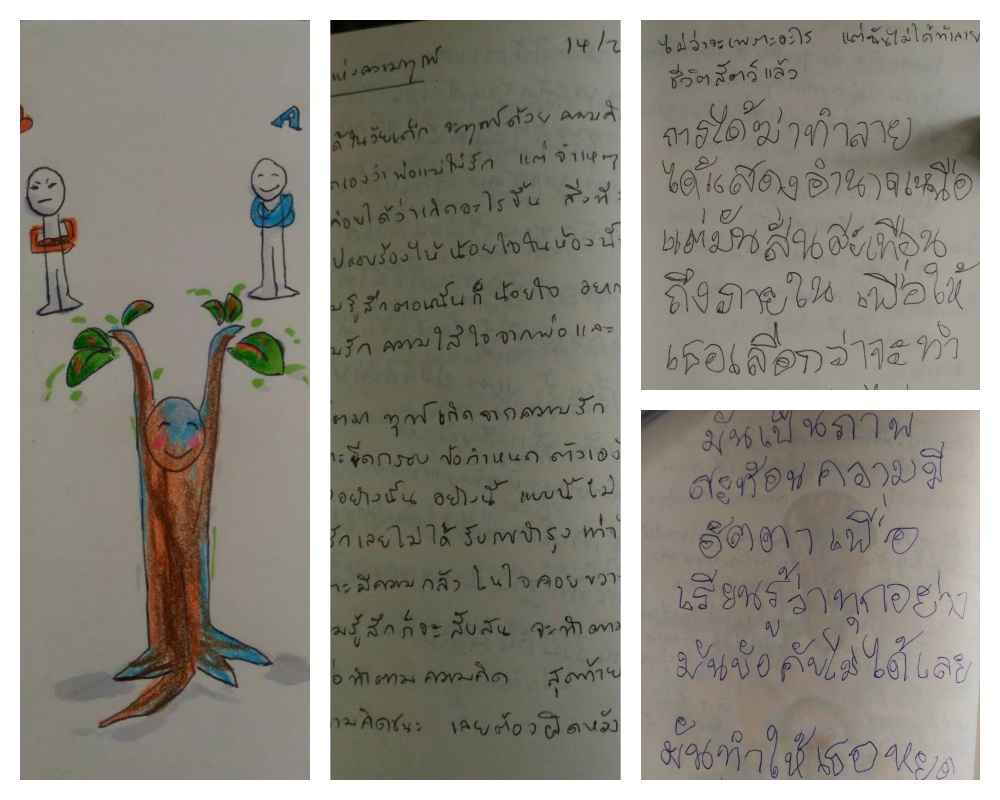 A
14/2
แห่งความทุกข์
ในวัยเด็ก จะทุกข์ด้วย ความคิ
เองว่าพ่อแม่ไม่รัก แต่ จำเหตุ
ค่อยได้ว่าเกิดอะไรขึ้น สิ่งที่
แอบร้องไห้ น้อยใจในห้องน้ำ
รู้สึกตอนนั้นก็ น้อยใจ อยาก
รัก ความใส่ใจ จากพ่อและ
ทุกข์เกิดจากความรัก
ขีดกรอบ ข้อกำหนด ตัวเอง
อย่างนั้น อย่างนี้ แบบนี้ไม่
รักเลยไม่ได้ รับการบำรุง เท่า
มีความกลัว ในใจคอยขวา
รู้สึกก็จะ สับสน จะทำตาม
ทำตาม ความคิด สุดท้าย
ความคิดชนะ เลยต้องผิดหวัง
ไม่ว่าจะเพราะอะไร แต่ฉันไม่ได้ทำลาย
ชีวิตสัตว์แล้ว
การได้ฆ่าทำลาย
ได้แสดงอำนาจเหนือ
แต่มันสั่นสะเทือน
ถึงภายใน เพื่อให้
เธอเลือกว่าจะทำ
มันเป็นภาพ
สะท้อนความมี
อัตตา เพื่อ
เรียนรู้ว่าทุกอย่าง
มันบังคับไม่ได้เลย
มันทำให้เธอหยุด